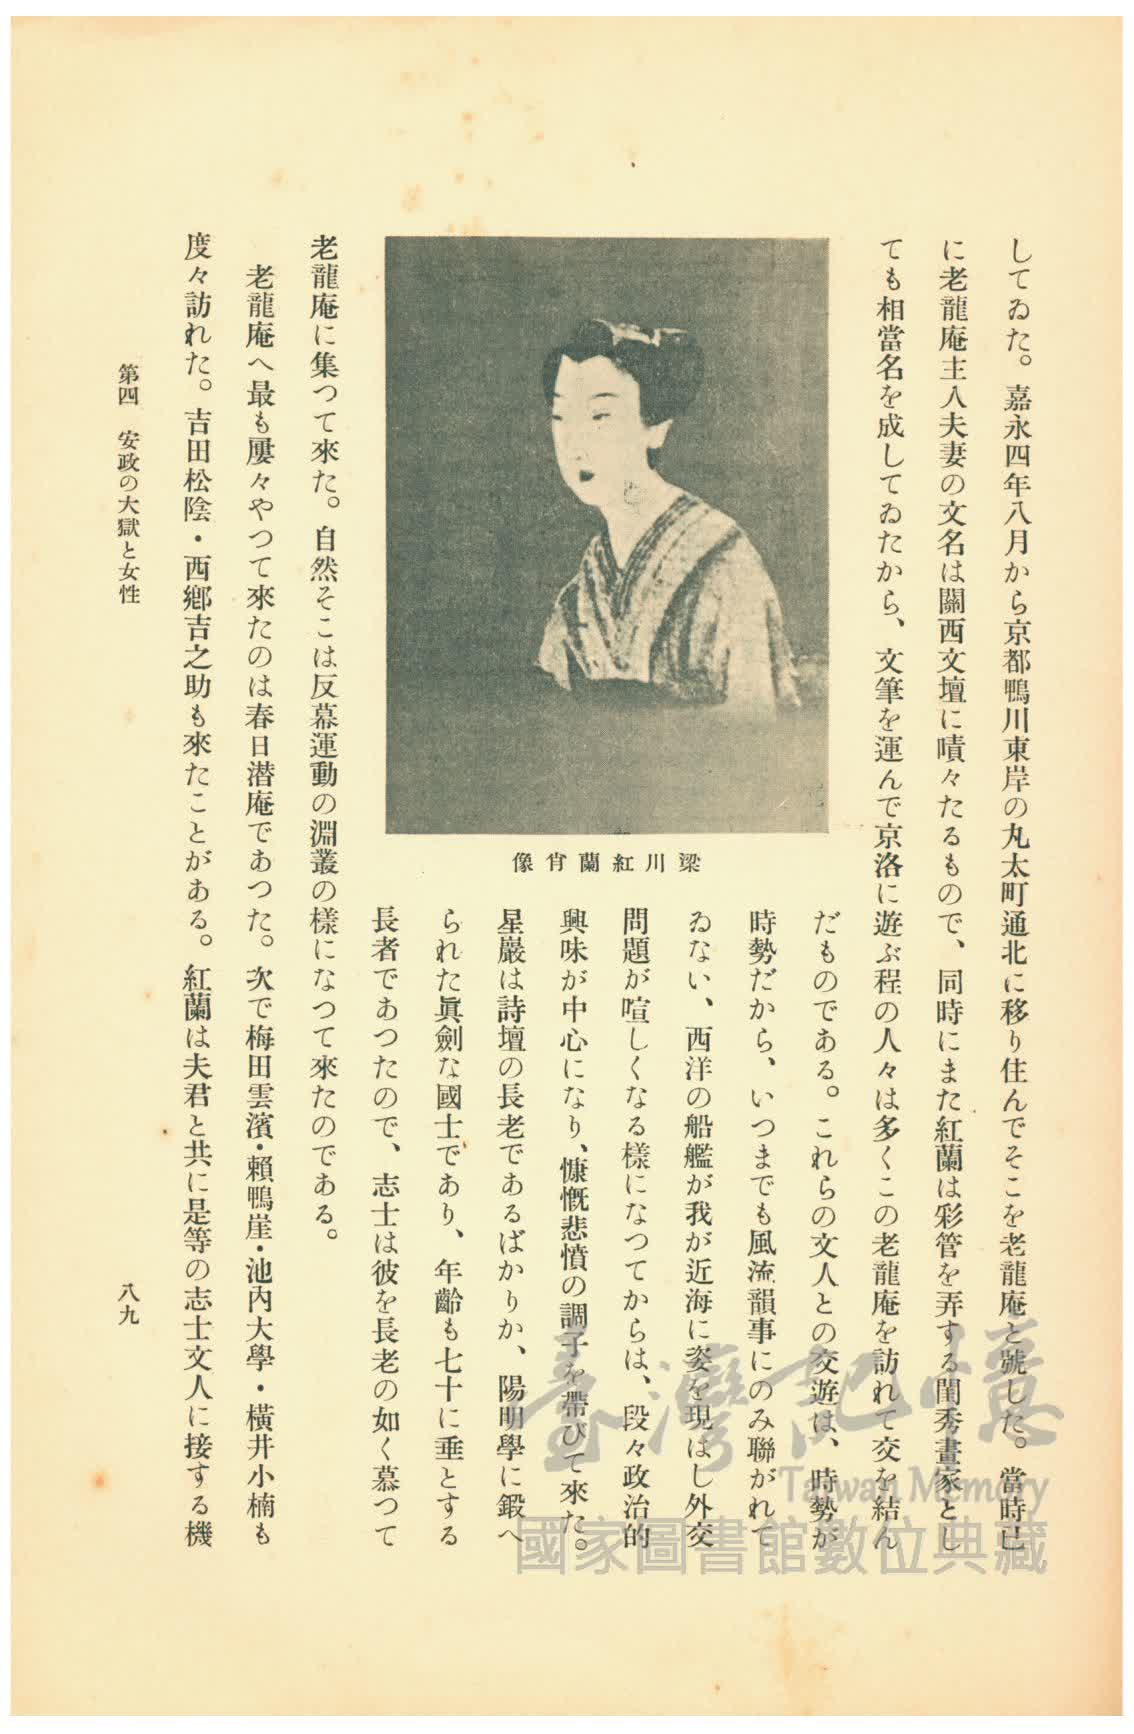 してゐた。嘉永四年八月から京都鴨川東岸の丸太町通北に移り住んでそこを老龍庵と號した。當時已
に老龍庵主人夫妻の文名は關西文壇に嘖々たるもので、同時にまた紅蘭は彩管を弄する閨秀畫家とし
ても相當名を成してゐたから、文筆を運んで京洛に遊ぶ程の人々は多くこの老龍庵を訪れて交を結ん
だものである。これらの文人との交遊は、時勢が
時勢だから、いつまでも風流韻事にのみ聯がれて
ゐない、西洋の船艦が我が近海に姿を現はし外交
問題が喧しくなる樣になつてからは、段々政治的
興味が中心になり、慷慨悲憤の調子を帶びて來た。
星巖は詩壇の長老であるばかりか、陽明學に鍛へ
られた眞劍な國士であり、年齡も七十に垂とする
長者であつたので、志士は彼を長老の如く慕つて
梁川紅蘭肖像
老龍庵に集つて來た。自然そこは反幕運動の淵叢の樣になつて來たのである。
老龍庵へ最も屢々やつて來たのは春日潜庵であつた。次で梅田雲濱・賴鴨崖・池內大學・橫井小楠も
度々訪れた。吉田松陰・西鄕吉之助も來たことがある。紅蘭は夫君と共に是等の志士文人に接する機
第四 安政の大獄と女性
八九
臺灣記憶
Taiwan Memory
國家圖書館數位典藏